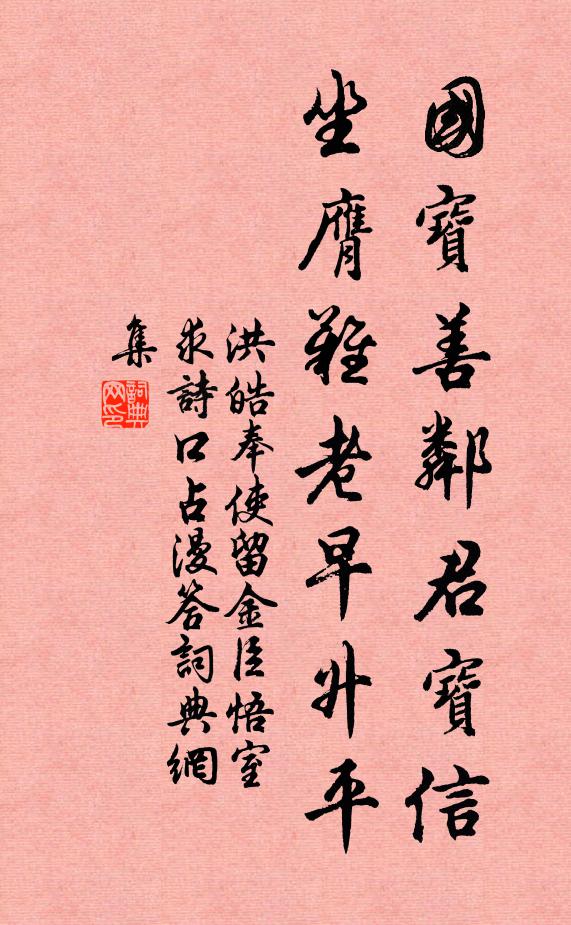 國寶善鄰君寶信
坐膺難老早升平
洪皓奉使留金臣悟室
求詩口占漫答詞典網
集
詞典
网印